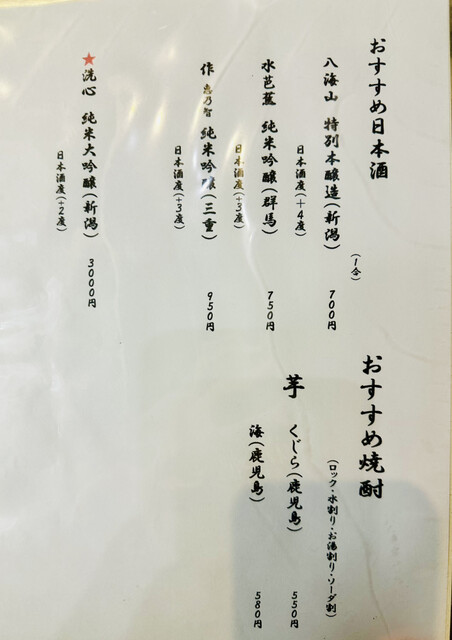 おすすめ日本酒
(1合)
八海山 特別本醸造(新潟) 700円
日本酒度(+4度)
水芭蕉 純米吟醸(群馬) 750円
日本酒度(+3度)
作 恵乃智 純米吟醸(三重) 950円
日本酒度(+3度)
★洗心 純米大吟醸(新潟) 3000円
日本酒度(+2度)
おすすめ焼酎
(ロック・水割り・お湯割り・ソーダ割)
芋 くじら(鹿児島) 550円
海(鹿児島) 580円